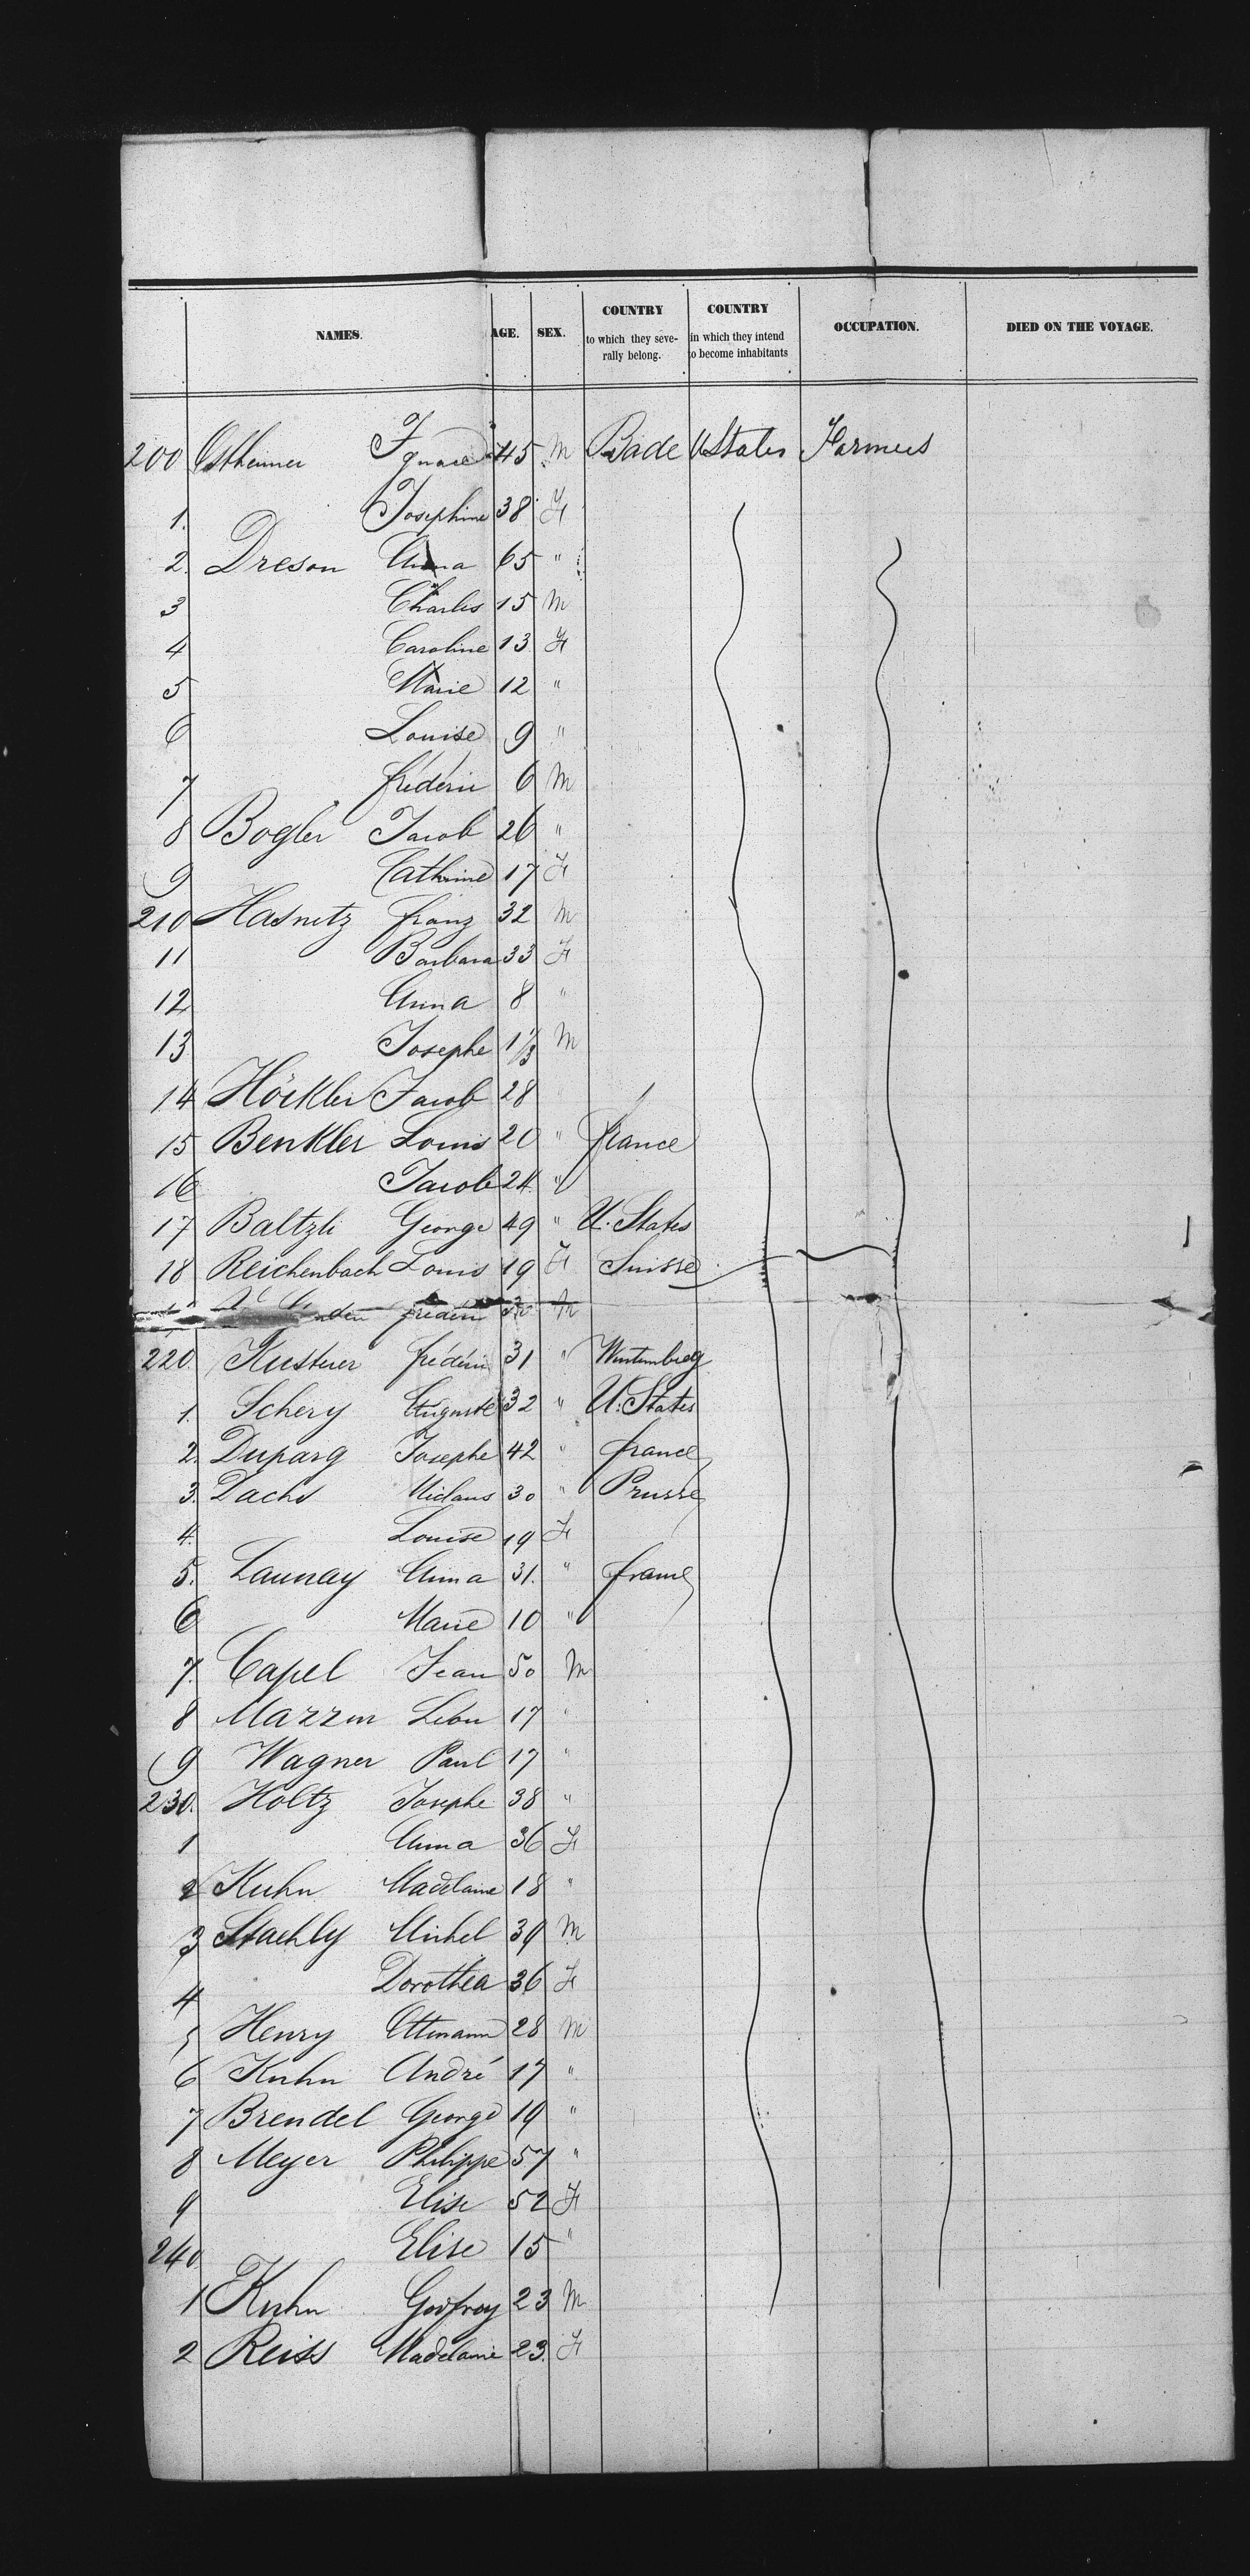 NAMES. AGE. SEX. COUNTRY to which they severally belong. COUNTRY in which they intend to become inhabitants OCCUPATION. DIED ON THE VOYAGE.
200 Ostheimer Ignace 45 M Bade U States Farmers
1. Josephine 38 F
2. Dreson Anna 65 "
3 Charles 15 M
4 Caroline 13 F
5 Marie 12 "
6 Louise 9 "
7 frédéric 6 M
8 Bogler Jacob 26 "
9 Cathrine 17 F
210 Hasnetz franz 32 M
11 Barbara 33 F
12 Anna 8 "
13 Josephe 1 1/3 M
14 Höckler Jacob 28
15 Benkler Louis 20 " france
16 Jacob 24 "
17 Baltzli George 49 " U. States
18 Reichenbach Louis 19 F Suisse
frédéric M
220. Kustner frédéric 31 " Wurtemberg
1. Schery Auguste 32 " U. States
2. Duparg Josephe 42 " france
3. Dachs Niclaus 30 " Prusse
4. Louise 19 F
5. Launay Anna 31. " france
6 Marie 10 "
7. Capel Jean 50 M
8 Mazzen Léon 17 "
9 Wagner Paul 17 "
230. Holtz Josephe 38 "
1 Anna 36 F
2 Kuhn Madelaine 18 "
3 Staehly Michel 39 M
4 Dorothea 36 F
5 Henry Ottmann 28 M
6 Kuhn André 17 "
7 Brendel George 19 "
8 Meyer Philippe 57 "
9 Elise 52 F
240. Elise 15 "
1 Kuhn Godfroy 23 M
2 Reiss Madelaine 23. F